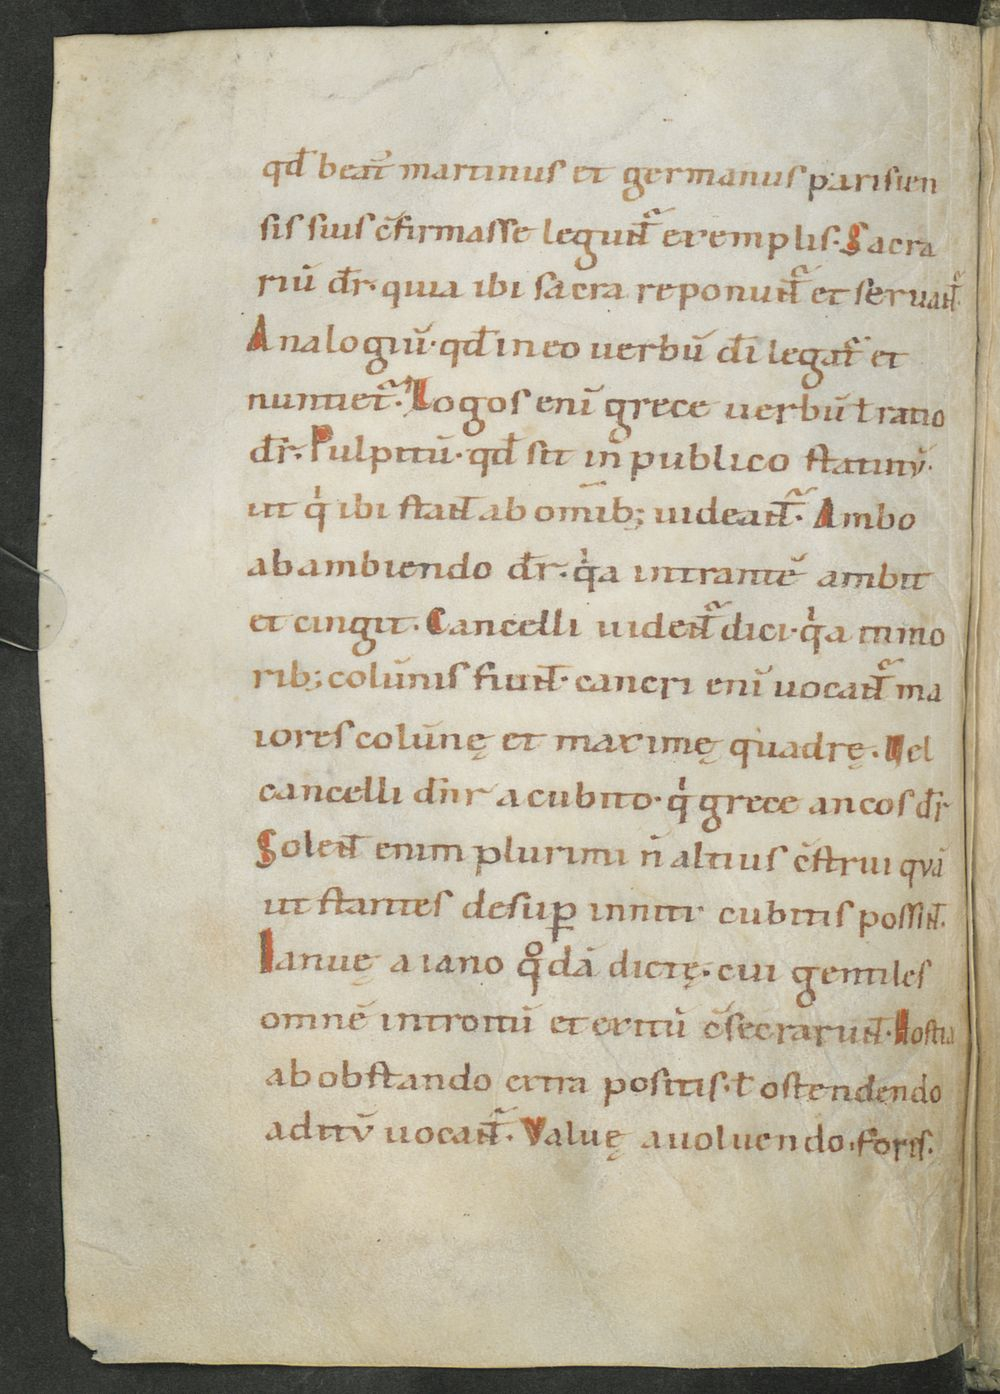 qđ beat᷑ martinus et germanus parisien
sis suis c̄firmasse legunt᷑ exemplis. Sacra
riū dr̄. quia ibi sacra reponunt᷑ et seruant᷑.
Analogiū. qđ in eo uerbū dī legat᷑ et
nuntiet᷑. Logos enī grece uerbū ł ratio
dr̄. Pulpitū. qđ sit in publico statutū.
ut qͥ ibi stant ab om̄ib; uideant᷑. Ambo
ab ambiendo dr̄. qͥa intrantē ambit
et cingit. Cancelli uident᷑ dici. qͥa mino
rib; colūnis fiunt. cancri enī uocant᷑ ma
iores colūnę et maximę quadrę. Vel
cancelli dn̄r a cubito. qͥ grece ancos dr̄
Solent enim plurimi n̄ altius c̄strui quā
ut stantes desuꝑ inniti cubitis possint.
Ianuę a iano qͦdā dictę. cui gentiles
omnē introitū et exitū c̄secrarunt. Hostia
ab obstando extra positis. ł ostendendo
aditū uocant᷑. Valuę a uoluendo. foris.